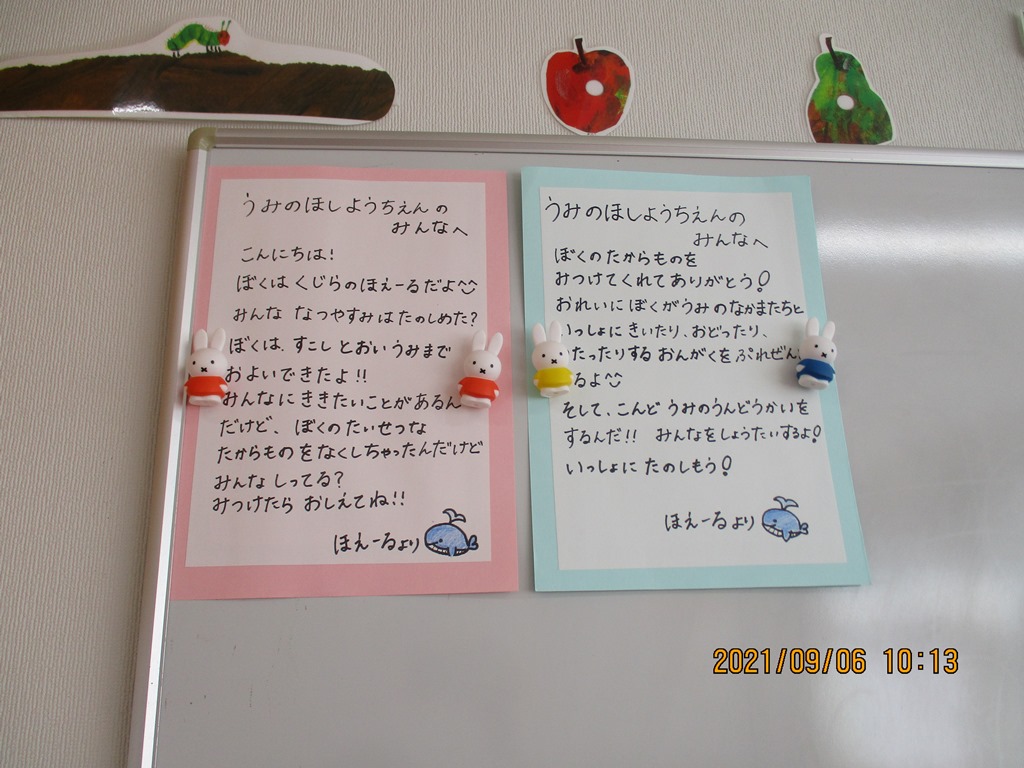 うみのほしようちえんの
みんなへ
こんにちは!
ぼくはくじらのほえーるだよ^^
みんな なつやすみはたのしめた?
ぼくは、すこしとおいうみまで
およいできたよ!!
みんなにききたいことがあるん
だけど、ぼくのたいせつな
たからものをなくしちゃったんだけど
みんなしってる?
みつけたら おしえてね!!
ほえーるより
うみのほしようちえんの
みんなへ
ぼくのたからものを
みつけてくれてありがとう!
おれいにぼくがうみのなかまたちと
いっしょにきいたり、おどったり、
たったりするおんがくをぷれぜん
るよ^^
そして、こんどうみのうんどうかいを
するんだ!! みんなをしょうたいするよ!
いっしょにたのしもう!
ほえーるより
2021/09/06 10:13